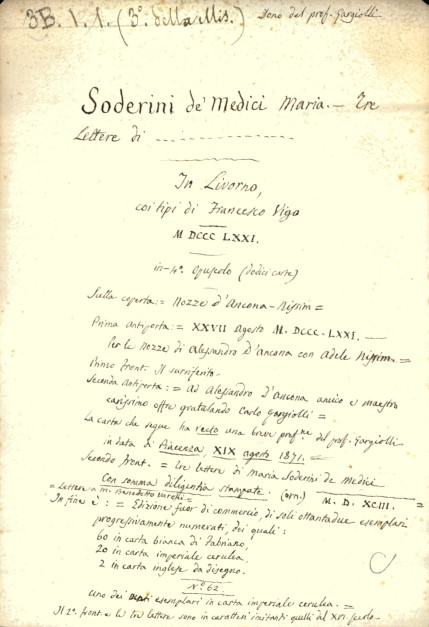 3B. 1. 1. (3º. della Mis.) Dono del prof. Gargiolli
Soderini de' Medici Maria. — Tre
Lettere di
In Livorno,
coi tipi di Francesco Vigo
M DCCC LXXI.
in-4º. Opuscolo (dodici carte)
Sulla coperta: = Nozze d'Ancona-Nissim =
Prima antiporta: = XXVII agosto M. DCCC. LXXI. —
Per le Nozze di Alessandro D'Ancona con Adele Nissim. =
Primo front. Il surriferito.
Seconda Antiporta: = Ad Alessandro D'Ancona amico e maestro
carissimo offre gratulando Carlo Gargiolli =
La carta che segue ha recto una breve prefne. del prof. Gargiolli
in data di Piacenza, XIX agosto 1871. =
Secondo front. = Tre lettere di Maria Soderini de Medici
Con somma diligentia stampate. (orn.) M. D. XCIII. =
= Lettere a M. Benedetto Varchi =
In fine è: = Edizione fuor di commercio, di soli ottantadue esemplari
progressivamente numerati, dei quali:
60 in carta bianca di Fabriano,
20 in carta imperiale cerulea,
2 in carta inglese da disegno.
Nº. 62.
Uno dei esemplari in carta imperiale cerulea. =
Il 2º. front. e le tre lettere sono in caratteri imitanti quelli del XVI. secolo.